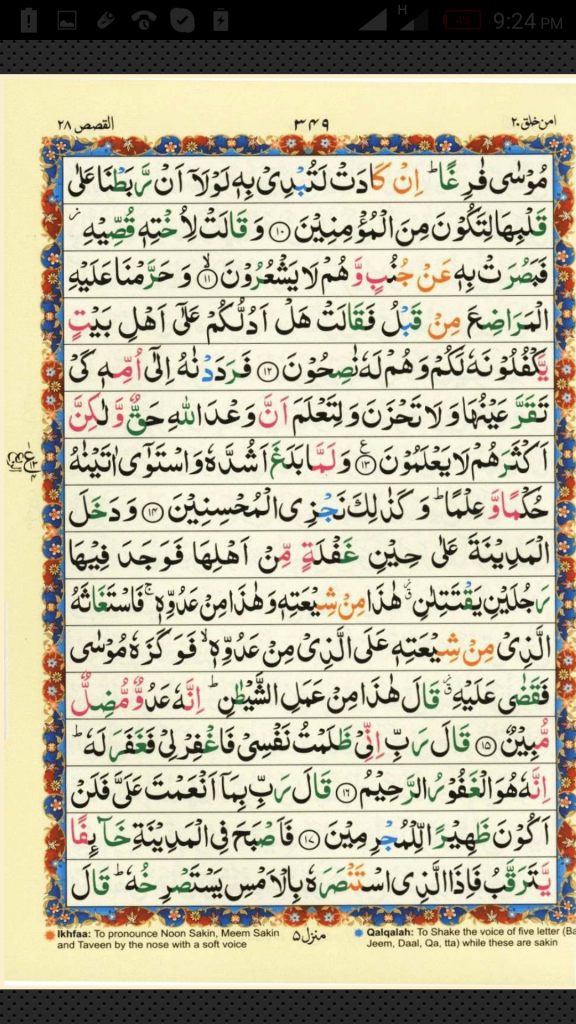 9:24 PM
القصص ٢٨
٣٤٩
امن خلق ٢٠
مُوْسٰى فٰرِغًا ؕ اِنْ كَادَتْ لَتُبْدِيْ بِهٖ لَوْلَاۤ اَنْ رَّبَطْنَا عَلٰى
قَلْبِهَا لِتَكُوْنَ مِنَ الْمُؤْمِنِيْنَ ١٠ وَ قَالَتْ لِاُخْتِهٖ قُصِّيْهِ ؗ
فَبَصُرَتْ بِهٖ عَنْ جُنُبٍ وَّ هُمْ لَا يَشْعُرُوْنَ ۙ ١١ وَ حَرَّمْنَا عَلَيْهِ
الْمَرَاضِعَ مِنْ قَبْلُ فَقَالَتْ هَلْ اَدُلُّكُمْ عَلٰۤى اَهْلِ بَيْتٍ
يَّكْفُلُوْنَهٗ لَكُمْ وَ هُمْ لَهٗ نٰصِحُوْنَ ١٢ فَرَدَدْنٰهُ اِلٰۤى اُمِّهٖ كَيْ
تَقَرَّ عَيْنُهَا وَ لَا تَحْزَنَ وَ لِتَعْلَمَ اَنَّ وَعْدَ اللّٰهِ حَقٌّ وَّ لٰكِنَّ
اَكْثَرَهُمْ لَا يَعْلَمُوْنَ ١٣ وَ لَمَّا بَلَغَ اَشُدَّهٗ وَ اسْتَوٰۤى اٰتَيْنٰهُ
حُكْمًا وَّ عِلْمًا ؕ وَ كَذٰلِكَ نَجْزِي الْمُحْسِنِيْنَ ١٤ وَ دَخَلَ
الْمَدِيْنَةَ عَلٰى حِيْنِ غَفْلَةٍ مِّنْ اَهْلِهَا فَوَجَدَ فِيْهَا
رَجُلَيْنِ يَقْتَتِلٰنِ ۗ هٰذَا مِنْ شِيْعَتِهٖ وَ هٰذَا مِنْ عَدُوِّهٖ ۚ فَاسْتَغَاثَهُ
الَّذِيْ مِنْ شِيْعَتِهٖ عَلَى الَّذِيْ مِنْ عَدُوِّهٖ ۙ فَوَكَزَهٗ مُوْسٰى
فَقَضٰى عَلَيْهِ ۗ قَالَ هٰذَا مِنْ عَمَلِ الشَّيْطٰنِ ؕ اِنَّهٗ عَدُوٌّ مُّضِلٌّ
مُّبِيْنٌ ١٥ قَالَ رَبِّ اِنِّيْ ظَلَمْتُ نَفْسِيْ فَاغْفِرْ لِيْ فَغَفَرَ لَهٗ ؕ
اِنَّهٗ هُوَ الْغَفُوْرُ الرَّحِيْمُ ١٦ قَالَ رَبِّ بِمَاۤ اَنْعَمْتَ عَلَيَّ فَلَنْ
اَكُوْنَ ظَهِيْرًا لِّلْمُجْرِمِيْنَ ١٧ فَاَصْبَحَ فِي الْمَدِيْنَةِ خَآىِٕفًا
يَّتَرَقَّبُ فَاِذَا الَّذِي اسْتَنْصَرَهٗ بِالْاَمْسِ يَسْتَصْرِخُهٗ ؕ قَالَ
Ikhfaa: To pronounce Noon Sakin, Meem Sakin
and Taveen by the nose with a soft voice
منزل ٥
Qalqalah: To Shake the voice of five letter (Ba
Jeem, Daal, Qa, tta) while these are sakin